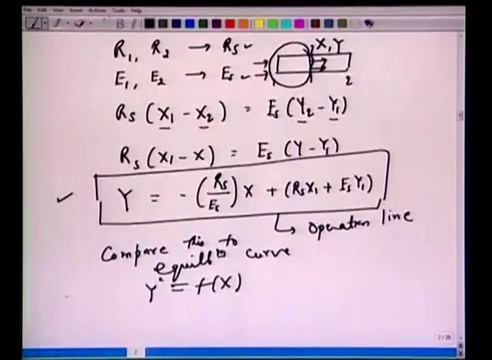 R₁, R₂ → Rₛ ✓ X, Y
E₁, E₂ → Eₛ ✓ 1 2
Rₛ (X₁ - X₂) = Eₛ (Y₂ - Y₁)
Rₛ (X₁ - X) = Eₛ (Y - Y₁)
✓ Y = - (Rₛ/Eₛ) X + (RₛX₁ + EₛY₁)
↳ Operation line
Compare this to
equilbᵐ curve
Y* = f(X)